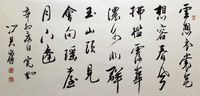 雲想衣裳花
想容春風
拂檻露華
濃若非群
玉山頭見
會向瑶臺
月下逢
辛卯夏日